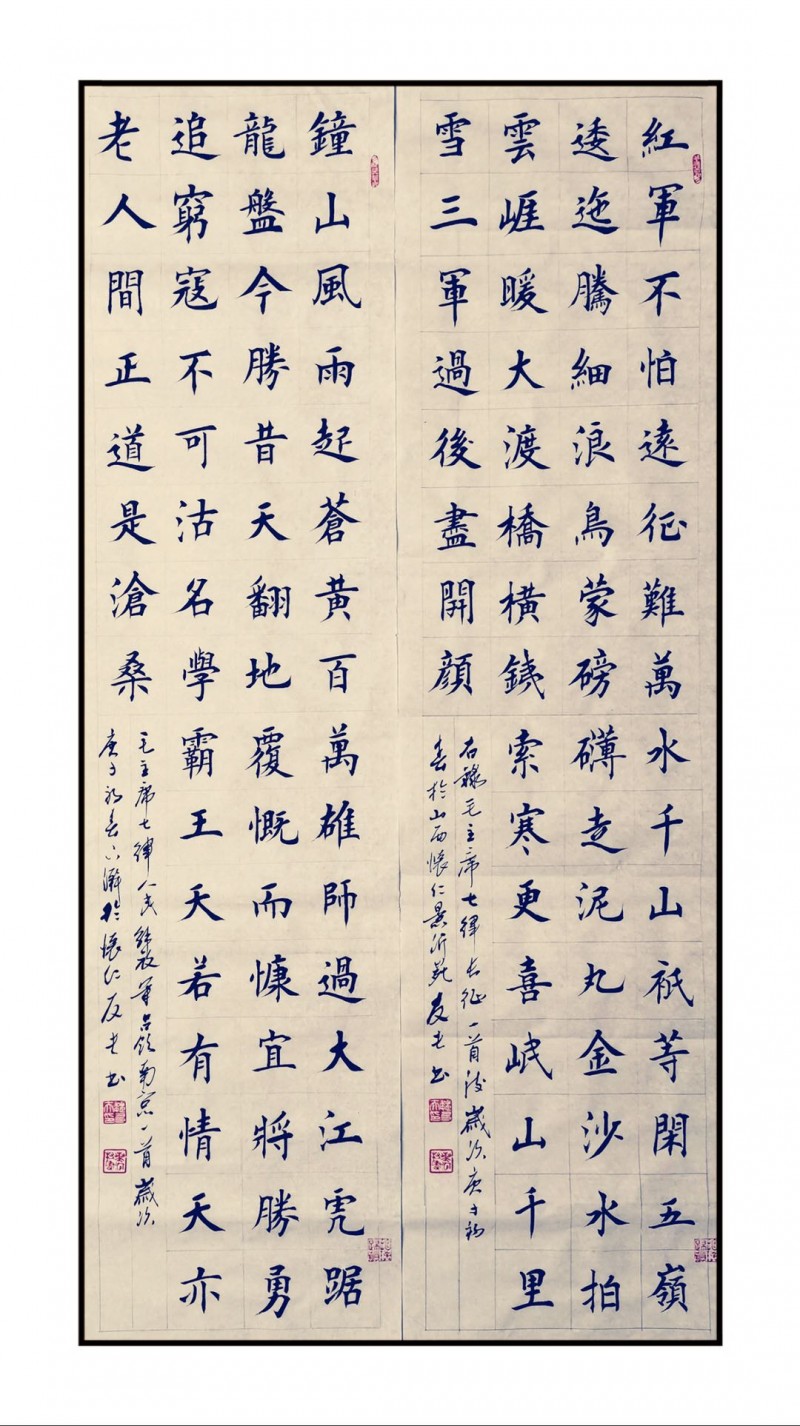 紅軍不怕遠征難萬水千山祇等閑五嶺
逶迤騰細浪鳥蒙磅礴走泥丸金沙水拍
雲崕暖大渡橋橫鐵索寒更喜岷山千里
雪三軍過後盡開顏
右錄毛主席七律長征一首歲次庚子初
春於山西懷仁景沂苑友老書
鐘山風雨起蒼黃百萬雄師過大江虎踞
龍盤今勝昔天翻地覆慨而慷宜將勝勇
追窮寇不可沽名學霸王天若有情天亦
老人間正道是滄桑
毛主席七律人民解放軍占領南京一首歲次
庚子初春下澣於懷仁友老書